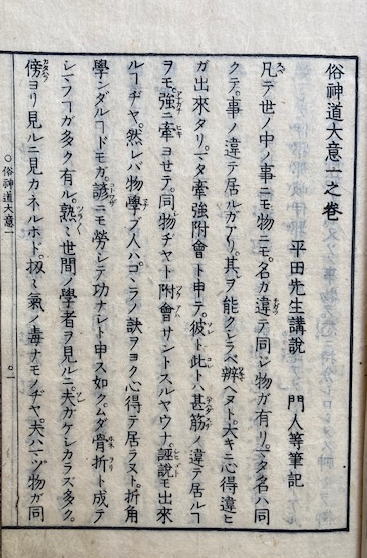 俗神道大意一之巻
平田先生講説　門人等筆記
凡テ世ノ中ノ事ニモ物ニモ。名ガ違テ同シ物ガ有リ。マタ名ハ同
クテ。事ノ違テ居ルガアリ。其ヲ能クシラベ辨ヘヌト。大キニ心得違ヒ
ガ出來タリ。マタ牽強附會ト申テ。彼ト此トハ甚ク筋ノ違テ居ルヿ
ヲモ。強ニ牽ヨセテ。同物ヂヤト附會サントスルヤウナ。誣説モ出來
ルヿヂヤ。然レバ物學ブ人ハ。コヽラノ訣ヲヨク心得テ居ラヌト。折角
學ンダルヿドモガ。諺ニモ勞シテ功ナシト申ス如ク。ムダ骨折ト成テ
シマフヿガ多ク有ル。熟々世間ノ學者ヲ見ルニ。夫ガケシカラズ多ク。
傍ヨリ見ルニ見カネルホド。扨々氣ノ毒ナモノヂヤ。夫ハマヅ物ガ同
○俗神道大意一
○一